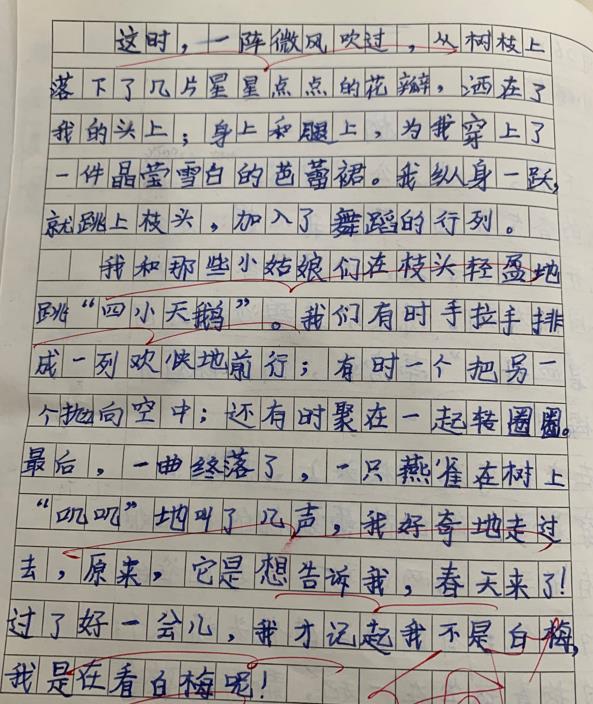 这时，一阵微风吹过，从树枝上
落下了几片星星点点的花瓣，洒在了
我的头上；身上和腿上，为我穿上了
一件晶莹雪白的芭蕾裙。我纵身一跃，
就跳上枝头，加入了舞蹈的行列。
我和那些小姑娘们在枝头轻盈地
跳“四小天鹅”。我们有时手拉手排
成一列欢快地前行；有时一个把另一
个抛向空中；还有时聚在一起转圈圈。
最后，一曲终落了，一只燕雀在树上
“叽叽”地叫了几声，我好奇地走过
去，原来，它是想告诉我，春天来了！
过了好一会儿，我才记起我不是白梅，
我是在看白梅呢！